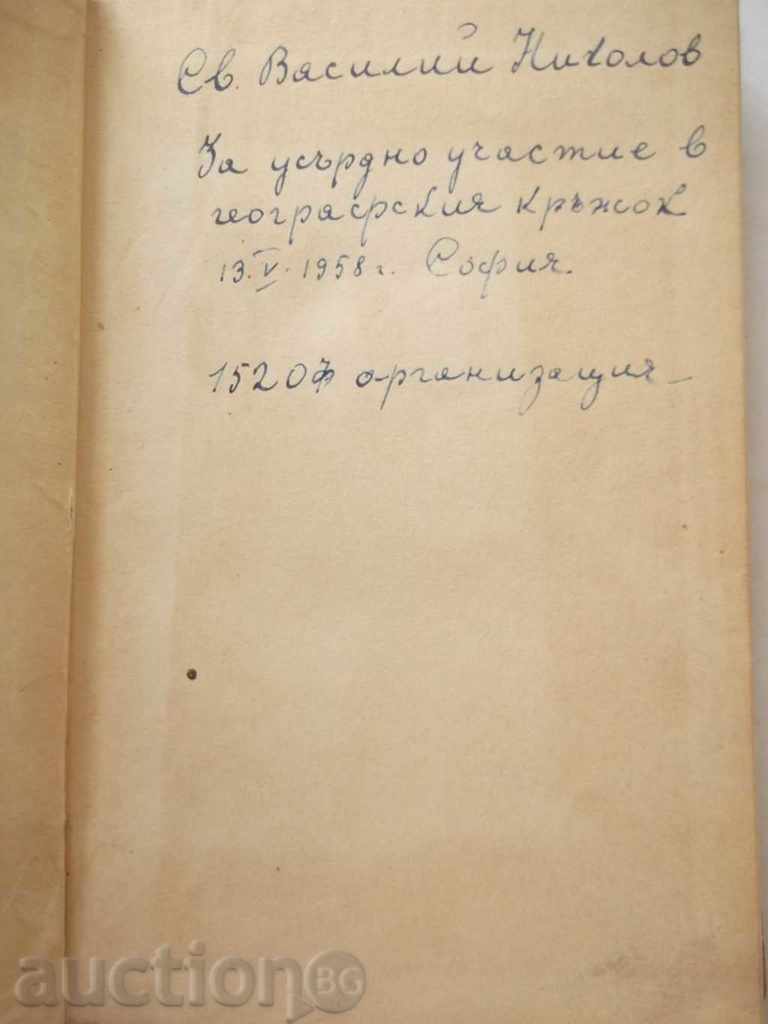 Св. Василий Николов
За усърдно участие в
географския кръжок
13.V.1958 г. София.
организация
auction BG